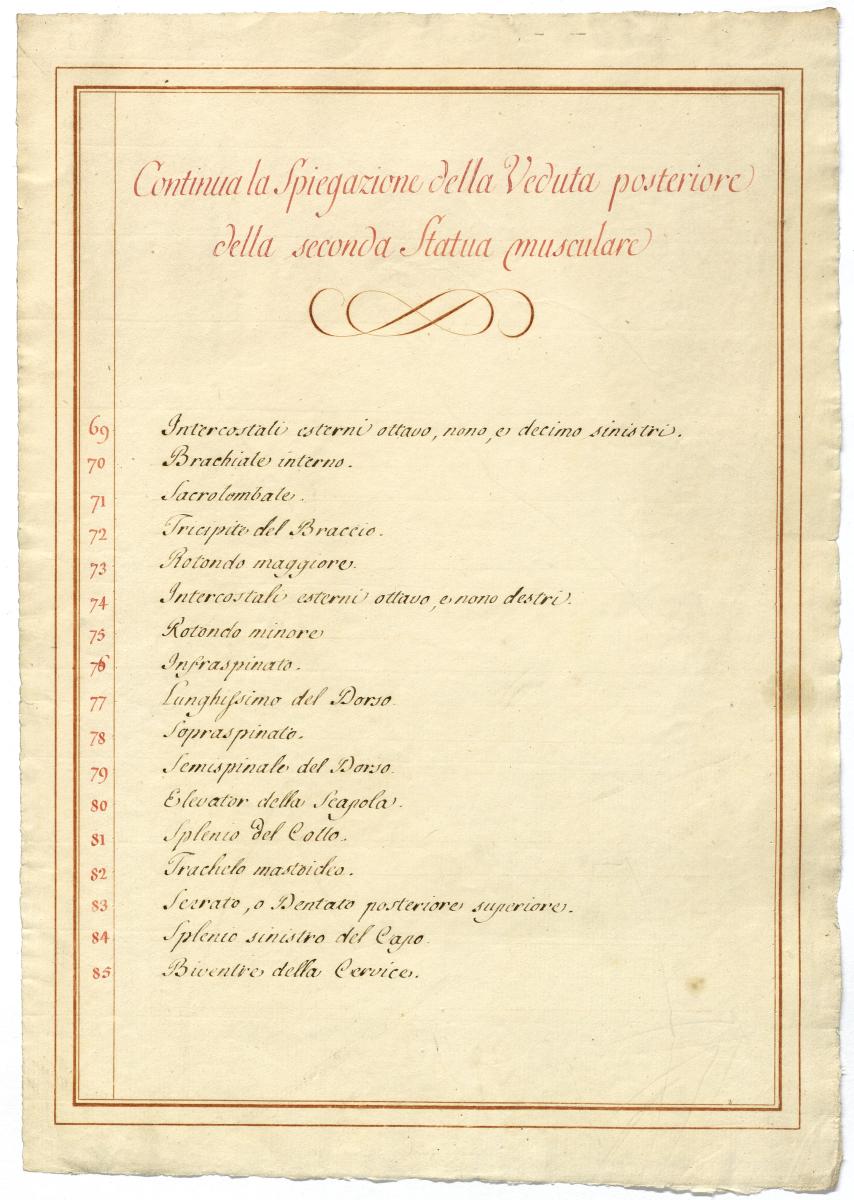 Continua la Spiegazione della Veduta posteriore
della seconda Statua musculare
69 Intercostali esterni ottavo, nono, e decimo sinistri.
70 Brachiale interno.
71 Sacrolombale.
72 Tricipite del Braccio.
73 Rotondo maggiore.
74 Intercostali esterni ottavo, e nono destri.
75 Rotondo minore
76 Infraspinato.
77 Lunghissimo del Dorso.
78 Sopraspinato.
79 Semispinale del Dorso.
80 Elevator della Scapola.
81 Splenio del Collo.
82 Trachelo mastoideo.
83 Serrato, o Dentato posteriore superiore.
84 Splenio sinistro del Capo.
85 Biventre della Cervice.